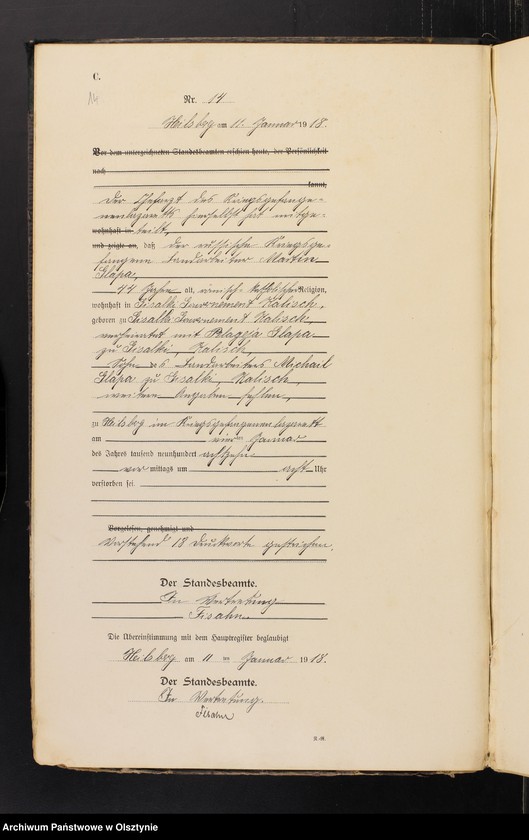 C.
14
Nr. 14
Heilsberg am 11. Januar 1918.
Vor dem unterzeichneten Standesbeamten erschien heute, der Persönlichkeit
nach
kannt,
Der Chefarzt des Kriegsgefange-
nenlazaretts hierselbst hat mitge-
wohnhaft in teilt,
und zeigte an, daß der russische Kriegsge-
fangene Landarbeiter Martin
Slapa,
44 Jahre alt, römisch katholischer Religion,
wohnhaft in Gisalki Gouvernement Kalisch,
geboren zu Gisalki Gouvernement Kalisch,
verheiratet mit Pelagja Slapa
zu Gisalki, Kalisch,
Sohn des Landarbeiters Michail
Slapa zu Gisalki, Kalisch,
weitere Angaben fehlen,
zu Heilsberg im Kriegsgefangenenlazarett
am vierten Januar
des Jahres tausend neunhundert achtzehn
vor mittags um acht Uhr
verstorben sei.
Vorgelesen, genehmigt und
Vorstehend 18 Druckworte gestrichen.
Der Standesbeamte.
In Vertretung
Fisahn
Die Übereinstimmung mit dem Hauptregister beglaubigt
Heilsberg am 11 ten Januar 1918.
Der Standesbeamte.
In Vertretung.
Fisahn
Archiwum Państwowe w Olsztynie